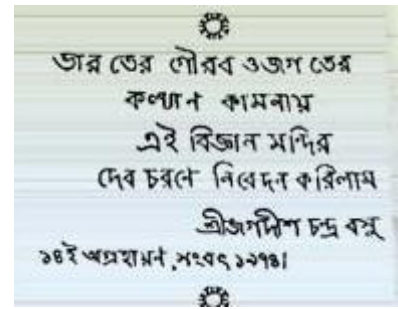 ভারতের গৌরব ও জগতের
কল্যাণ কামনায়
এই বিজ্ঞান মন্দির
দেব চরণে নিবেদন করিলাম
শ্রীজগদীশ চন্দ্র বসু
১৪ই অগ্রহায়ণ, সংবৎ ১৯৭৪।